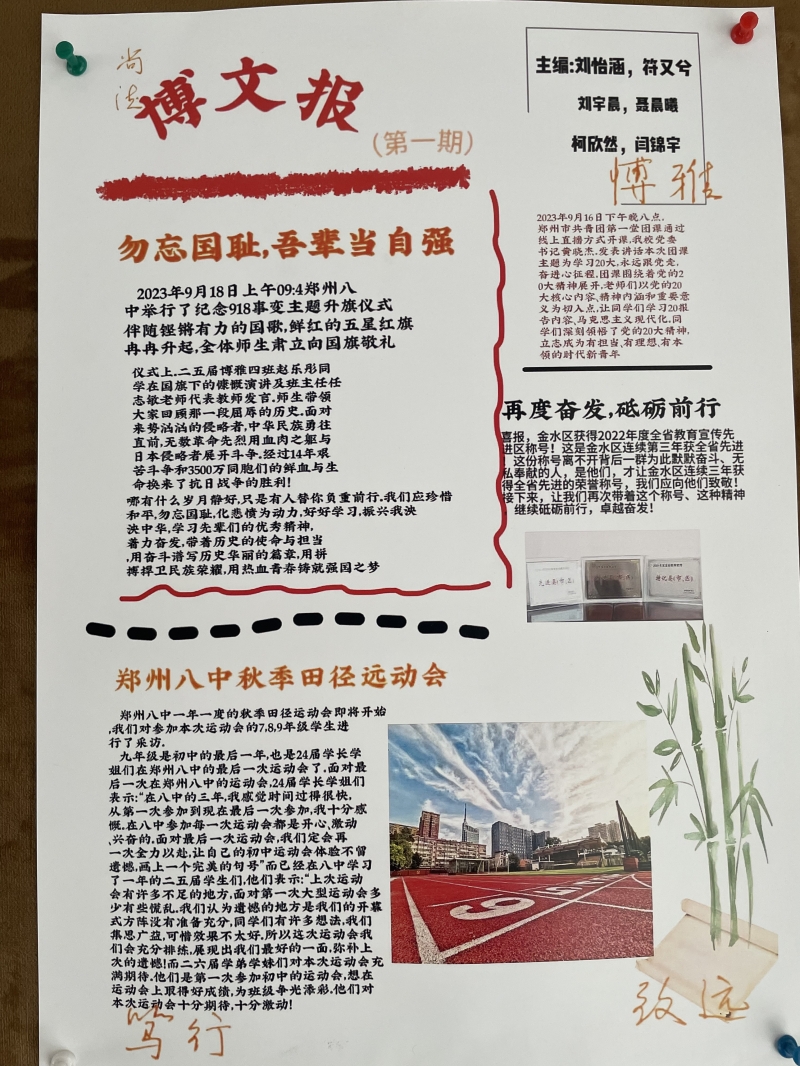 尚
德
博文报
(第一期)
主编:刘怡涵，符又兮
刘宇晨，聂晨曦
柯欣然，闫锦宇
博雅
勿忘国耻,吾辈当自强
2023年9月18日上午09:4郑州八
中举行了纪念918事变主题升旗仪式
伴随铿锵有力的国歌,鲜红的五星红旗
冉冉升起,全体师生肃立向国旗敬礼
仪式上.二五届博雅四班赵乐彤同
学在国旗下的慷慨演讲及班主任任
志敏老师代表教师发言.师生带领
大家回顾那一段屈辱的历史.面对
来势汹汹的侵略者,中华民族勇往
直前,无数革命先烈用血肉之躯与
日本侵略者展开斗争.经过14年艰
苦斗争和3500万同胞们的鲜血与生
命换来了抗日战争的胜利!
哪有什么岁月静好,只是有人替你负重前行.我们应珍惜
和平,勿忘国耻,化悲愤为动力,好好学习,振兴我泱
泱中华,学习先辈们的优秀精神,
着力奋发,带着历史的使命与担当
,用奋斗谱写历史华丽的篇章,用拼
搏捍卫民族荣耀,用热血青春铸就强国之梦
2023年9月16日下午晚八点,
郑州市共青团第一堂团课通过
线上直播方式开课.我校党委
书记黄晓杰.发表讲话本次团课
主题为学习20大.永远跟党走,
奋进心征程.团课围绕着党的2
0大精神展开.老师们以党的20
大核心内容,精神内涵和重要意
义为切入点,让同学们学习20报
告内容,马克思主义现代化.同
学们深刻领悟了党的20大精神,
立志成为有担当.有理想.有本
领的时代新青年
再度奋发,砥砺前行
喜报，金水区获得2022年度全省教育宣传先
进区称号！这是金水区连续第三年获全省先进
！这份称号离不开背后一群为此默默奋斗、无
私奉献的人，是他们，才让金水区连续三年获
得全省先进的荣誉称号，我们应向他们致敬！
接下来，让我们再次带着这个称号、这种精神
，继续砥砺前行，卓越奋发！
郑州八中秋季田径远动会
郑州八中一年一度的秋季田径运动会即将开始
,我们对参加本次运动会的7,8,9年级学生进
行了采访.
九年级是初中的最后一年,也是24届学长学
姐们在郑州八中的最后一次运动会了.面对最
后一次在郑州八中的运动会,24届学长学姐们
表示:"在八中的三年,我感觉时间过得很快,
从第一次参加到现在最后一次参加,我十分感
慨.在八中参加每一次运动会都是开心,激动
,兴奋的.面对最后一次运动会,我们定会再
一次全力以赴,让自己的初中运动会体验不留
遗憾,画上一个完美的句号"而已经在八中学习
了一年的二五届学生们,他们表示:"上次运动
会有许多不足的地方,面对第一次大型运动会多
少有些慌乱.我们认为遗憾的地方是我们的开幕
式方阵没有准备充分,同学们有许多想法,我们
集思广益,可惜效果不太好.所以这次运动会我
们会充分排练,展现出我们最好的一面,弥补上
次的遗憾!而二六届学弟学妹们对本次运动会充
满期待.他们是第一次参加初中的运动会,想在
运动会上取得好成绩,为班级争光添彩.他们对
本次运动会十分期待,十分激动!
6
笃行
致远